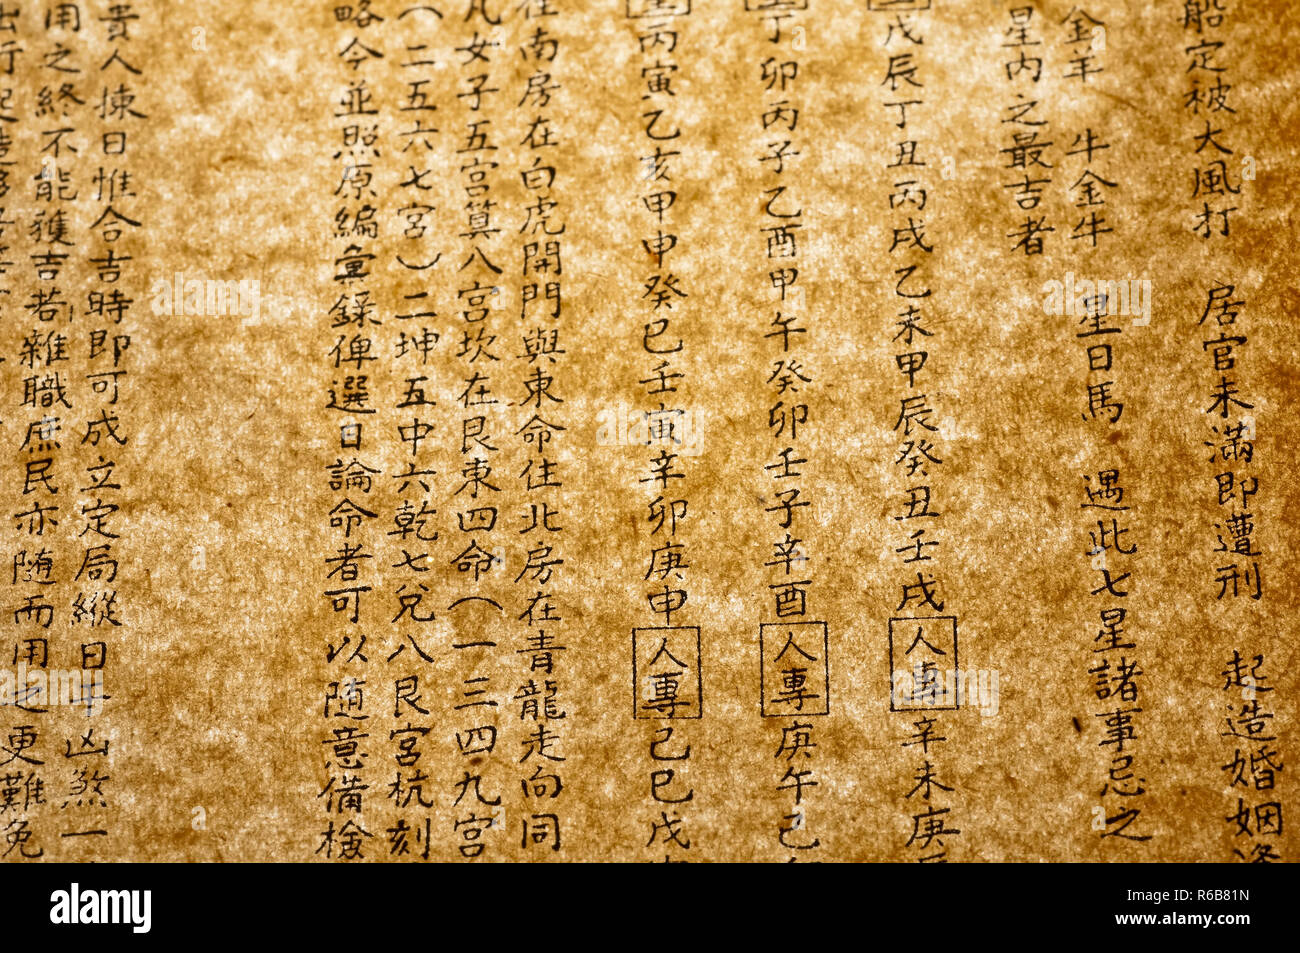 船定被大風打 居官未滿即遭刑 起造婚姻
金羊 牛金牛 星日馬 遇此七星諸事忌之
星內之最吉者
戊辰丁丑丙戌乙未甲辰癸丑壬戌人專辛未庚
丁卯丙子乙酉甲午癸卯壬子辛酉人專庚午己
丙寅乙亥甲申癸巳壬寅辛卯庚申人專己巳戊
在南房在白虎開門與東命住北房在青龍走向同
凡女子五宮算八宮坎在艮東四命（一三四九宮
（二五六七宮）二坤五中六乾七兌八艮宮杭刻
略今並照原編彙錄俾選日論命者可以隨意備檢
貴人揀日惟合吉時即可成立定局縱日干凶煞一
用之終不能獲吉若雜職庶民亦隨而用之更難免
出行
alamy
Image ID: R6B81N
www.alamy.com